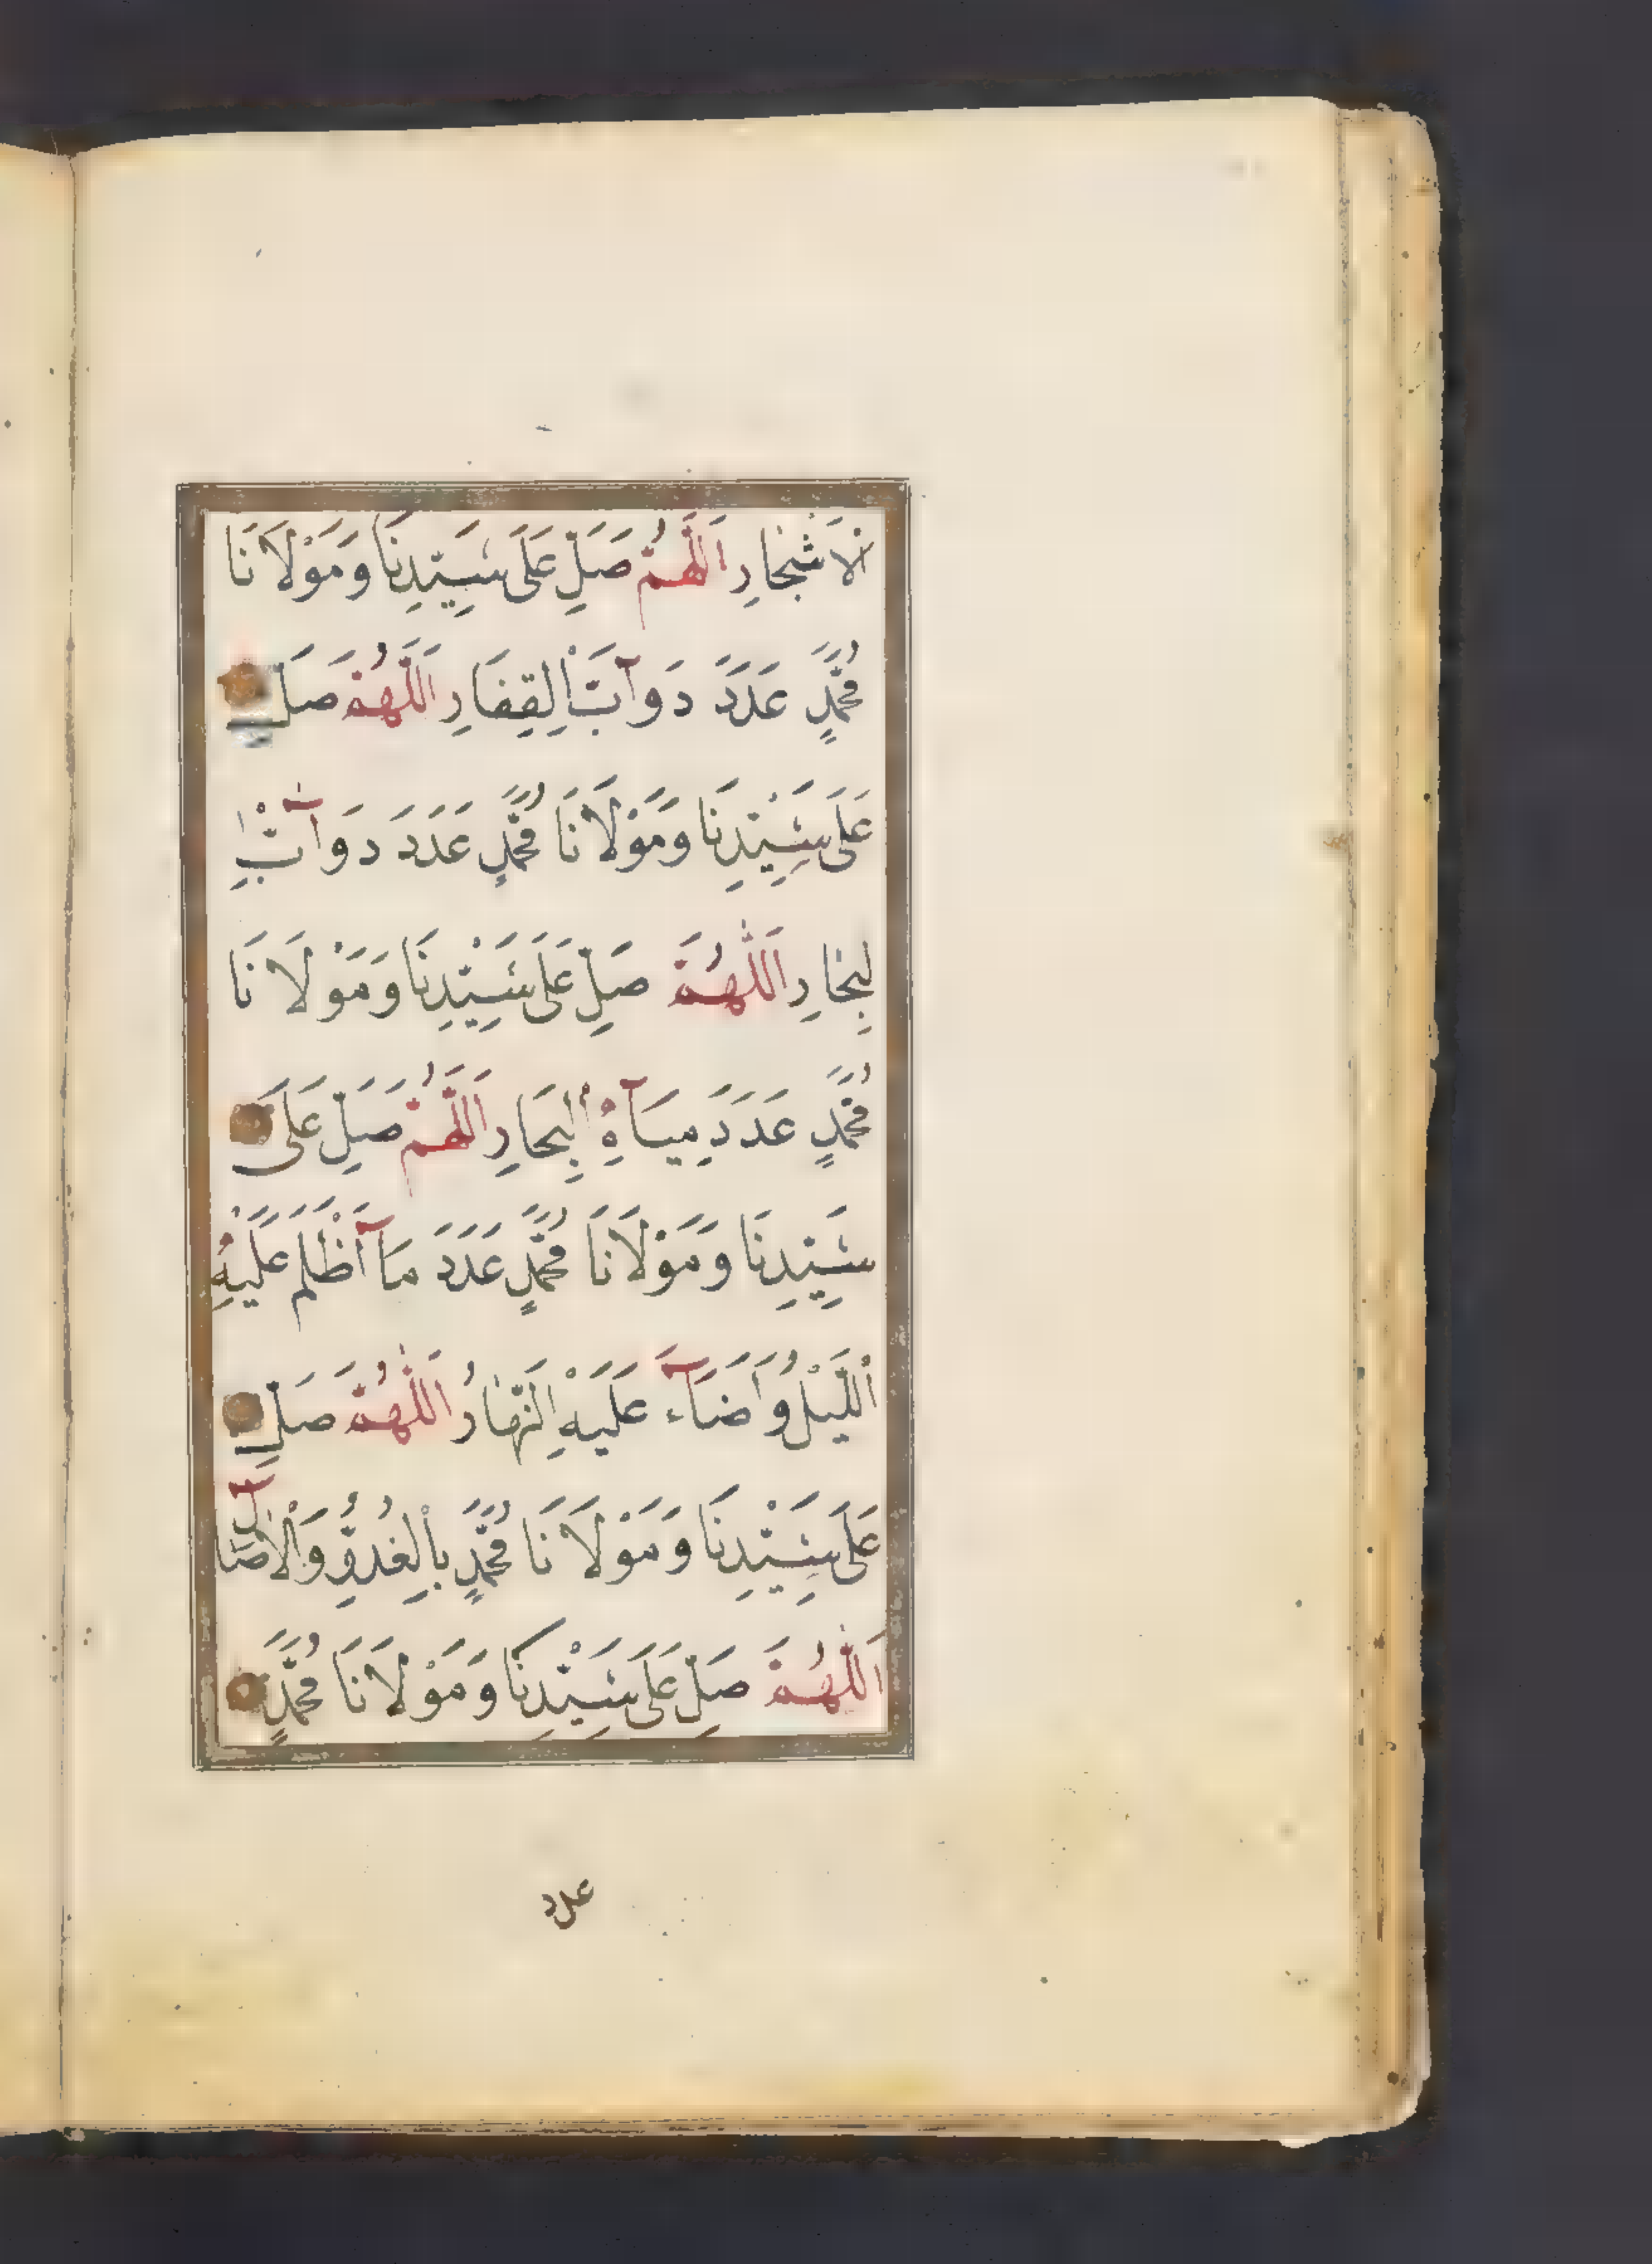 الْاَشْجَارِ اَللّٰهُمَّ صَلِّ عَلَى سَيِّدِنَا وَمَوْلَانَا
مُحَمَّدٍ عَدَدَ دَوَآبِّ الْقِفَارِ اَللّٰهُمَّ صَلِّ
عَلَى سَيِّدِنَا وَمَوْلَانَا مُحَمَّدٍ عَدَدَ دَوَآبِّ ا
لْبِحَارِ اَللّٰهُمَّ صَلِّ عَلَى سَيِّدِنَا وَمَوْلَانَا
مُحَمَّدٍ عَدَدَ مِيَآهِ الْبِحَارِ اَللّٰهُمَّ صَلِّ عَلَى
سَيِّدِنَا وَمَوْلَانَا مُحَمَّدٍ عَدَدَ مَآ اَظْلَمَ عَلَيْهِ
اللَّيْلُ وَاَضَآءَ عَلَيْهِ النَّهَارُ اَللّٰهُمَّ صَلِّ
عَلَى سَيِّدِنَا وَمَوْلَانَا مُحَمَّدٍ بِالْغُدُوِّ وَالْاٰصَالِ
اَللّٰهُمَّ صَلِّ عَلَى سَيِّدِنَا وَمَوْلَانَا مُحَمَّدٍ
عدد